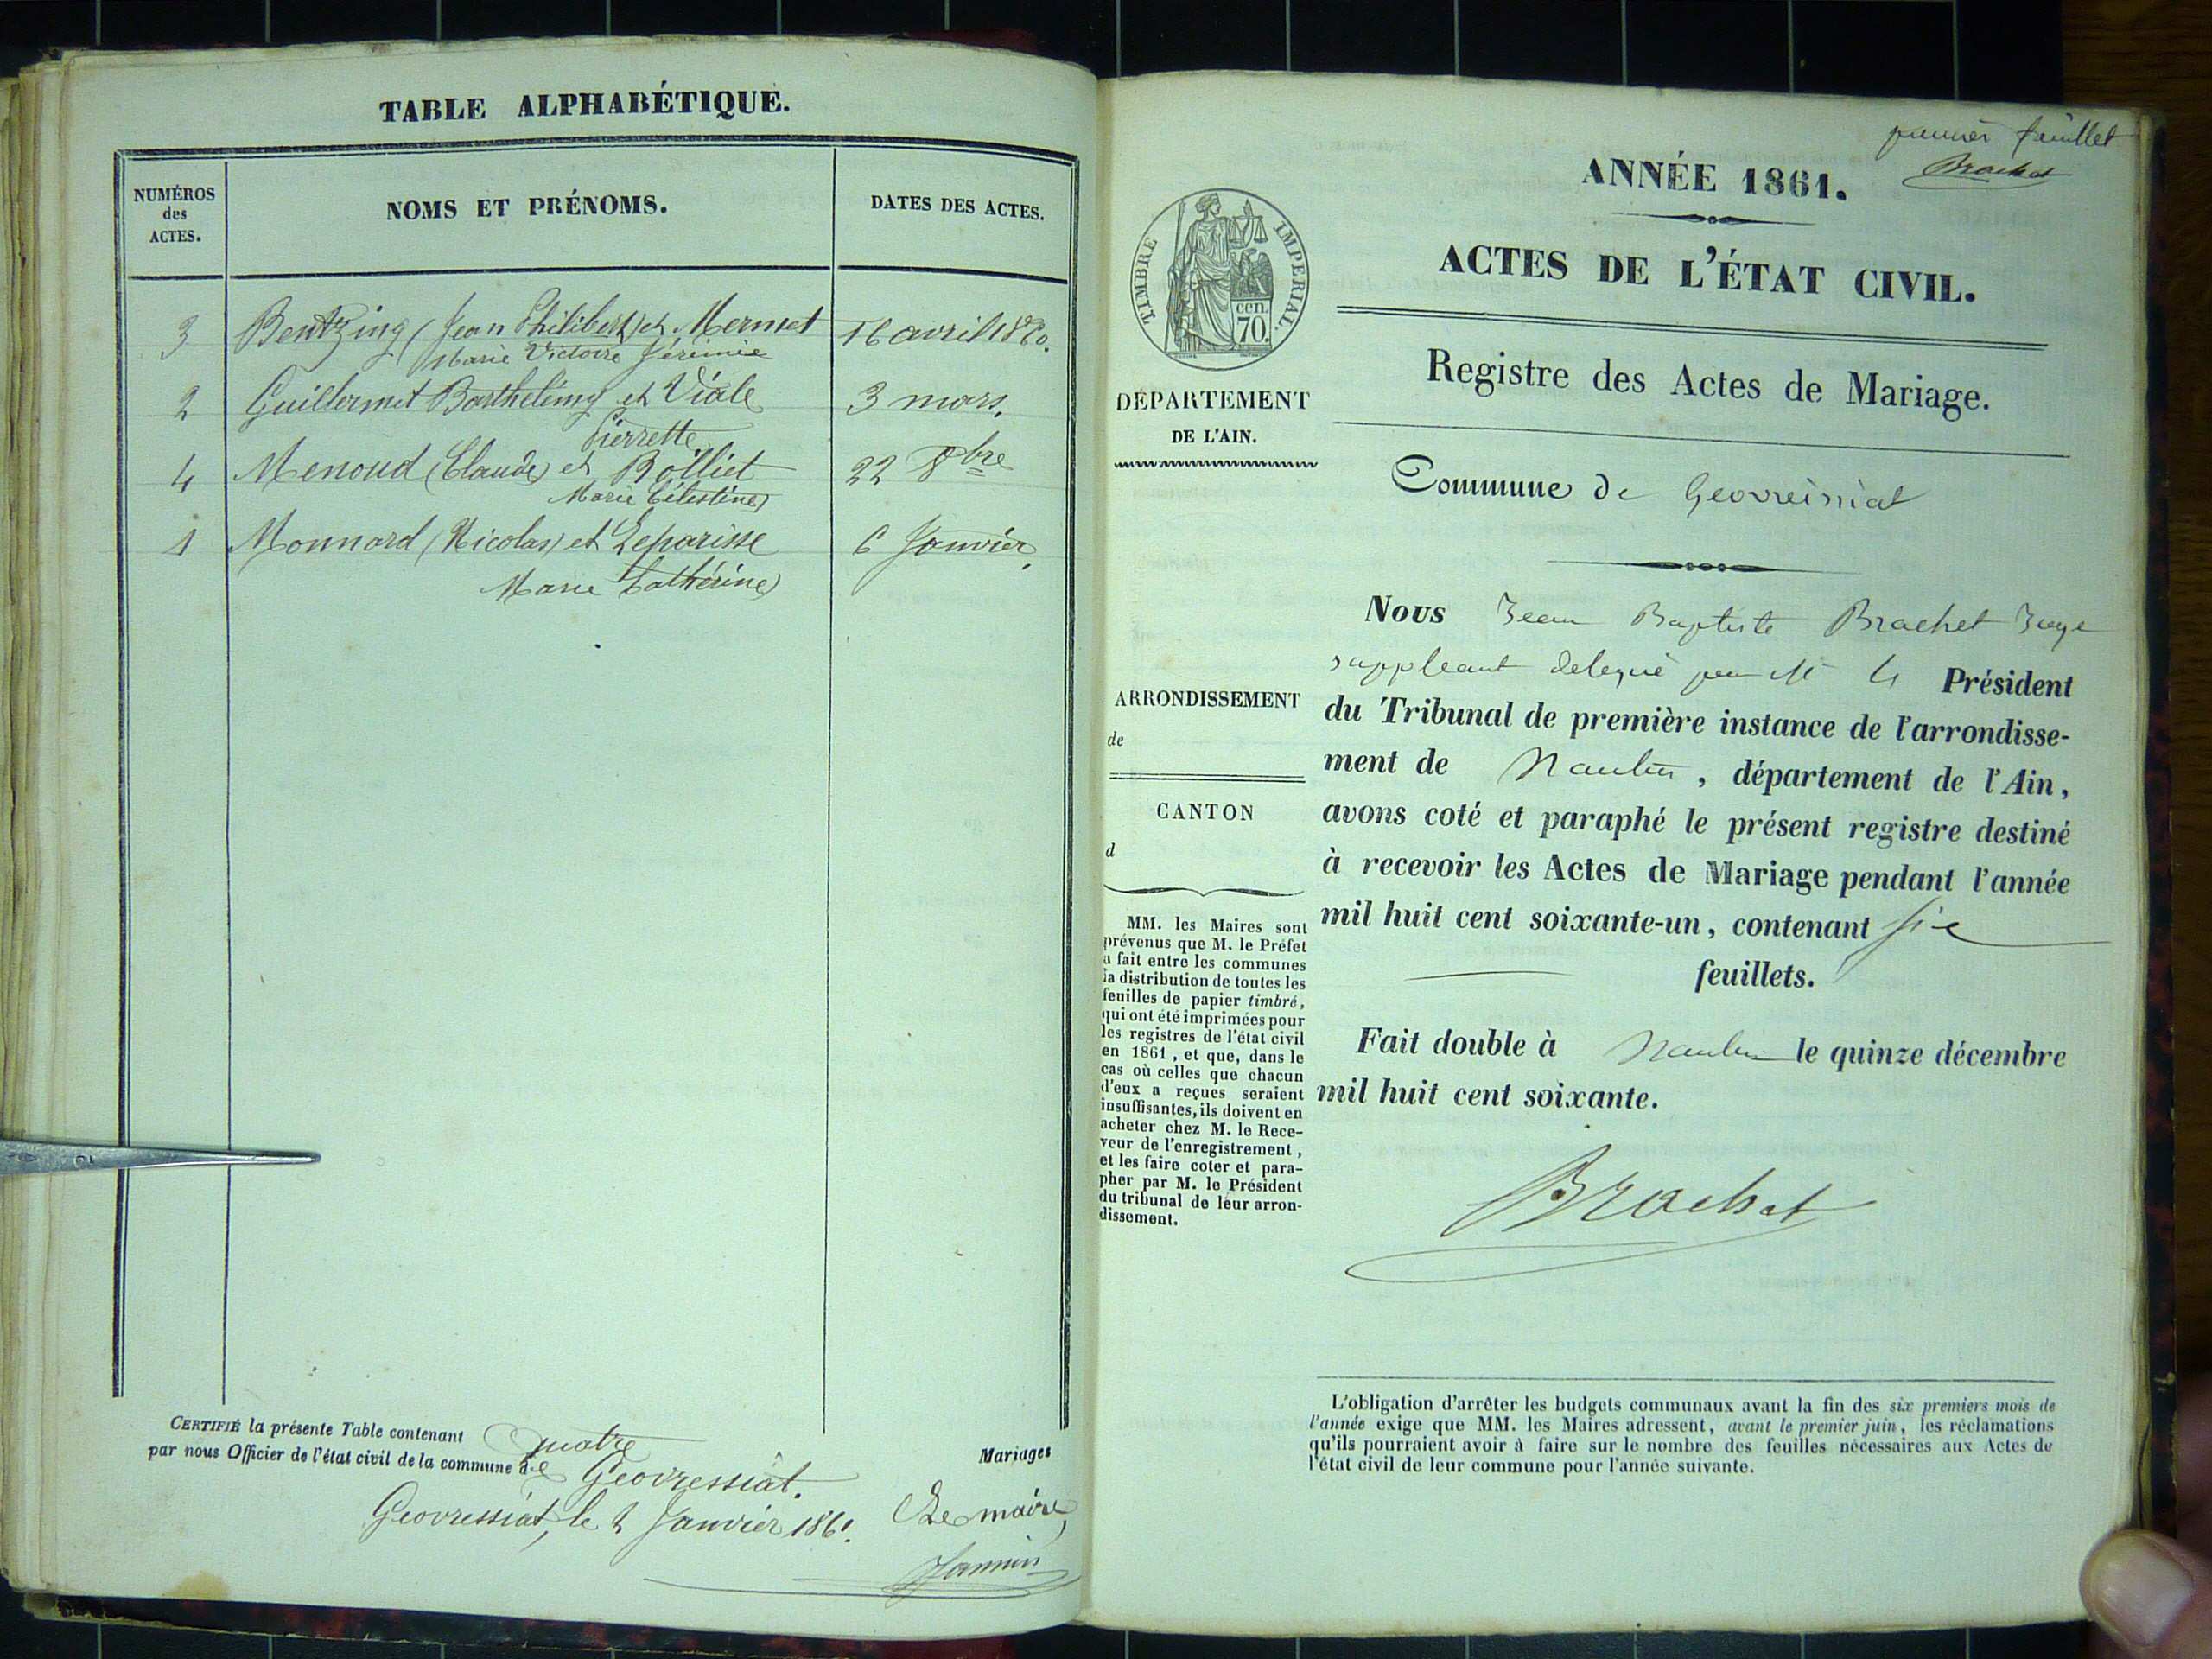 TABLE ALPHABÉTIQUE.
NUMÉROS
des
ACTES.
NOMS ET PRÉNOMS.
DATES DES ACTES.
3 Bentzing (Jean Philibert) et Mermet 16 avril 1860.
Marie Victoire Jérémie
2 Guillermet Barthelémy et Viale 3 mars.
Pierrette
4 Menoud (Claude) et Rolliet 22 8bre
Marie Célestine
1 Monnard (Nicolas) et Leparisse 6 Janvier.
Marie Cathérine
CERTIFIÉ la présente Table contenant quatre Mariages
par nous Officier de l'état civil de la commune de Geovressiat.
Geovressiat, le 2 Janvier 1861.
Le maire,
premier feuillet
Brachet
ANNÉE 1861.
ACTES DE L'ÉTAT CIVIL.
TIMBRE IMPERIAL.
cen.
70.
Registre des Actes de Mariage.
DÉPARTEMENT
DE L'AIN.
Commune de Geovreissiat
Nous Jean Baptiste Brachet Juge
suppleant delegué par Mr le Président
du Tribunal de première instance de l'arrondisse-
ment de Nantua, département de l'Ain,
avons coté et paraphé le présent registre destiné
à recevoir les Actes de Mariage pendant l'année
mil huit cent soixante-un, contenant six
feuillets.
Fait double à Nantua le quinze décembre
mil huit cent soixante.
Brachet
ARRONDISSEMENT
de
CANTON
d
MM. les Maires sont
prévenus que M. le Préfet
a fait entre les communes
la distribution de toutes les
feuilles de papier timbré,
qui ont été imprimées pour
les registres de l'état civil
en 1861, et que, dans le
cas où celles que chacun
d'eux a reçues seraient
insuffisantes, ils doivent en
acheter chez M. le Rece-
veur de l'enregistrement,
et les faire coter et para-
pher par M. le Président
du tribunal de leur arron-
dissement.
L'obligation d'arrêter les budgets communaux avant la fin des six premiers mois de
l'année exige que MM. les Maires adressent, avant le premier juin, les réclamations
qu'ils pourraient avoir à faire sur le nombre des feuilles nécessaires aux Actes de
l'état civil de leur commune pour l'année suivante.